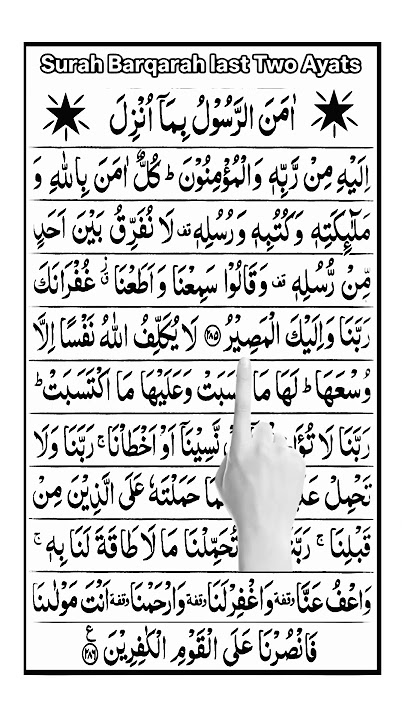 Surah Barqarah last Two Ayats
اٰمَنَ الرَّسُوْلُ بِمَاۤ اُنْزِلَ
اِلَيْهِ مِنْ رَّبِّهٖ وَالْمُؤْمِنُوْنَ ؕ كُلٌّ اٰمَنَ بِاللّٰهِ وَ
مَلٰٓئِكَتِهٖ وَكُتُبِهٖ وَرُسُلِهٖ قف لَا نُفَرِّقُ بَيْنَ اَحَدٍ
مِّنْ رُّسُلِهٖ قف وَقَالُوْا سَمِعْنَا وَاَطَعْنَا ز غُفْرَانَكَ
رَبَّنَا وَاِلَيْكَ الْمَصِيْرُ ۝۲۸۵ لَا يُكَلِّفُ اللّٰهُ نَفْسًا اِلَّا
وُسْعَهَا ؕ لَهَا مَا كَسَبَتْ وَعَلَيْهَا مَا اكْتَسَبَتْ ؕ
رَبَّنَا لَا نَّسِيْنَاۤ اَوْ اَخْطَاْنَا ۚ رَبَّنَا وَلَا
تَحْمِلْ حَمَلْتَهٗ عَلَى الَّذِيْنَ مِنْ
قَبْلِنَا ۚ تُحَمِّلْنَا مَا لَا طَاقَةَ لَنَا بِهٖ ۚ
وَاعْفُ عَنَّا وقفة وَاغْفِرْ لَنَا وقفة وَارْحَمْنَا وقفة اَنْتَ مَوْلٰىنَا
فَانْصُرْنَا عَلَى الْقَوْمِ الْكٰفِرِيْنَ ۝۲۸۶ ع